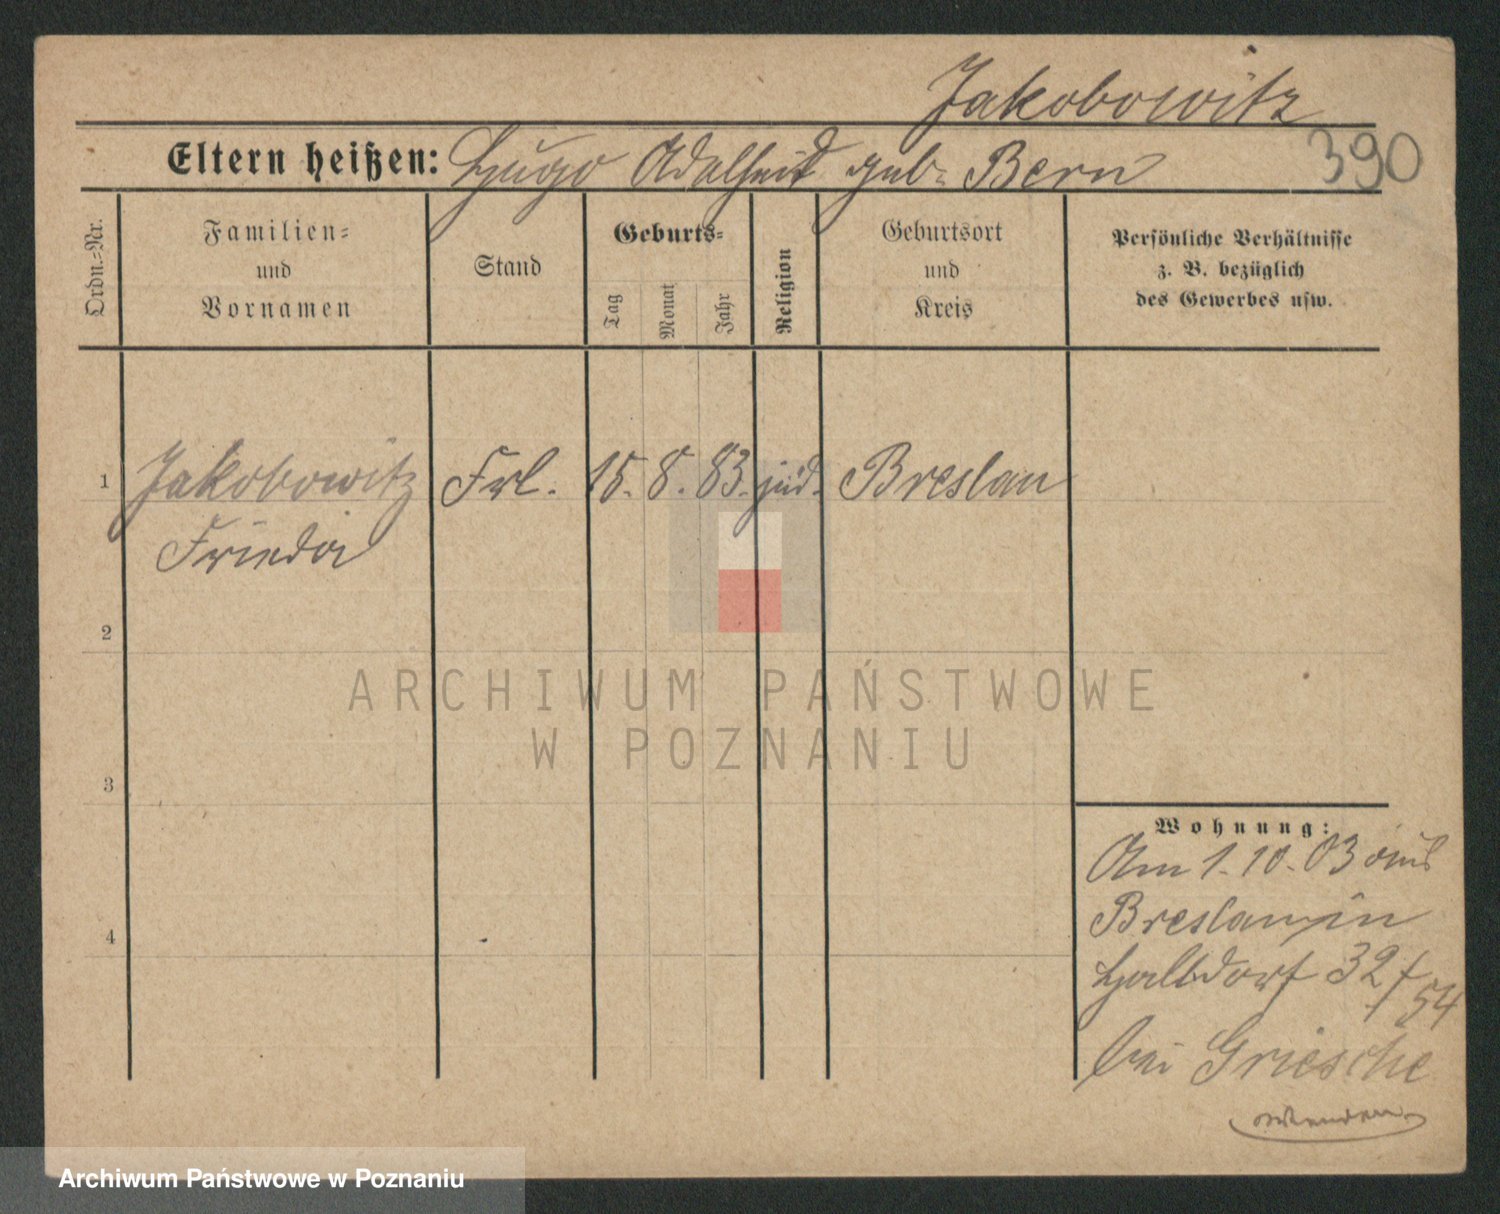 Jakobowitz
390
Eltern heißen: Hugo Adelheid geb. Bern
Ordn.-Nr.
Familien-
und
Vornamen
Stand
Geburts-
Tag
Monat
Jahr
Religion
Geburtsort
und
Kreis
Persönliche Verhältnisse
z. B. bezüglich
des Gewerbes usw.
1 Jakobowitz Frl. 15. 8. 83. jüd. Breslau
Frieda
2
3
4
Wohnung:
Am 1. 10. 03 aus
Breslau in
Halbdorf 32/54
bei Griesche
ARCHIWUM PAŃSTWOWE
W POZNANIU
Archiwum Państwowe w Poznaniu